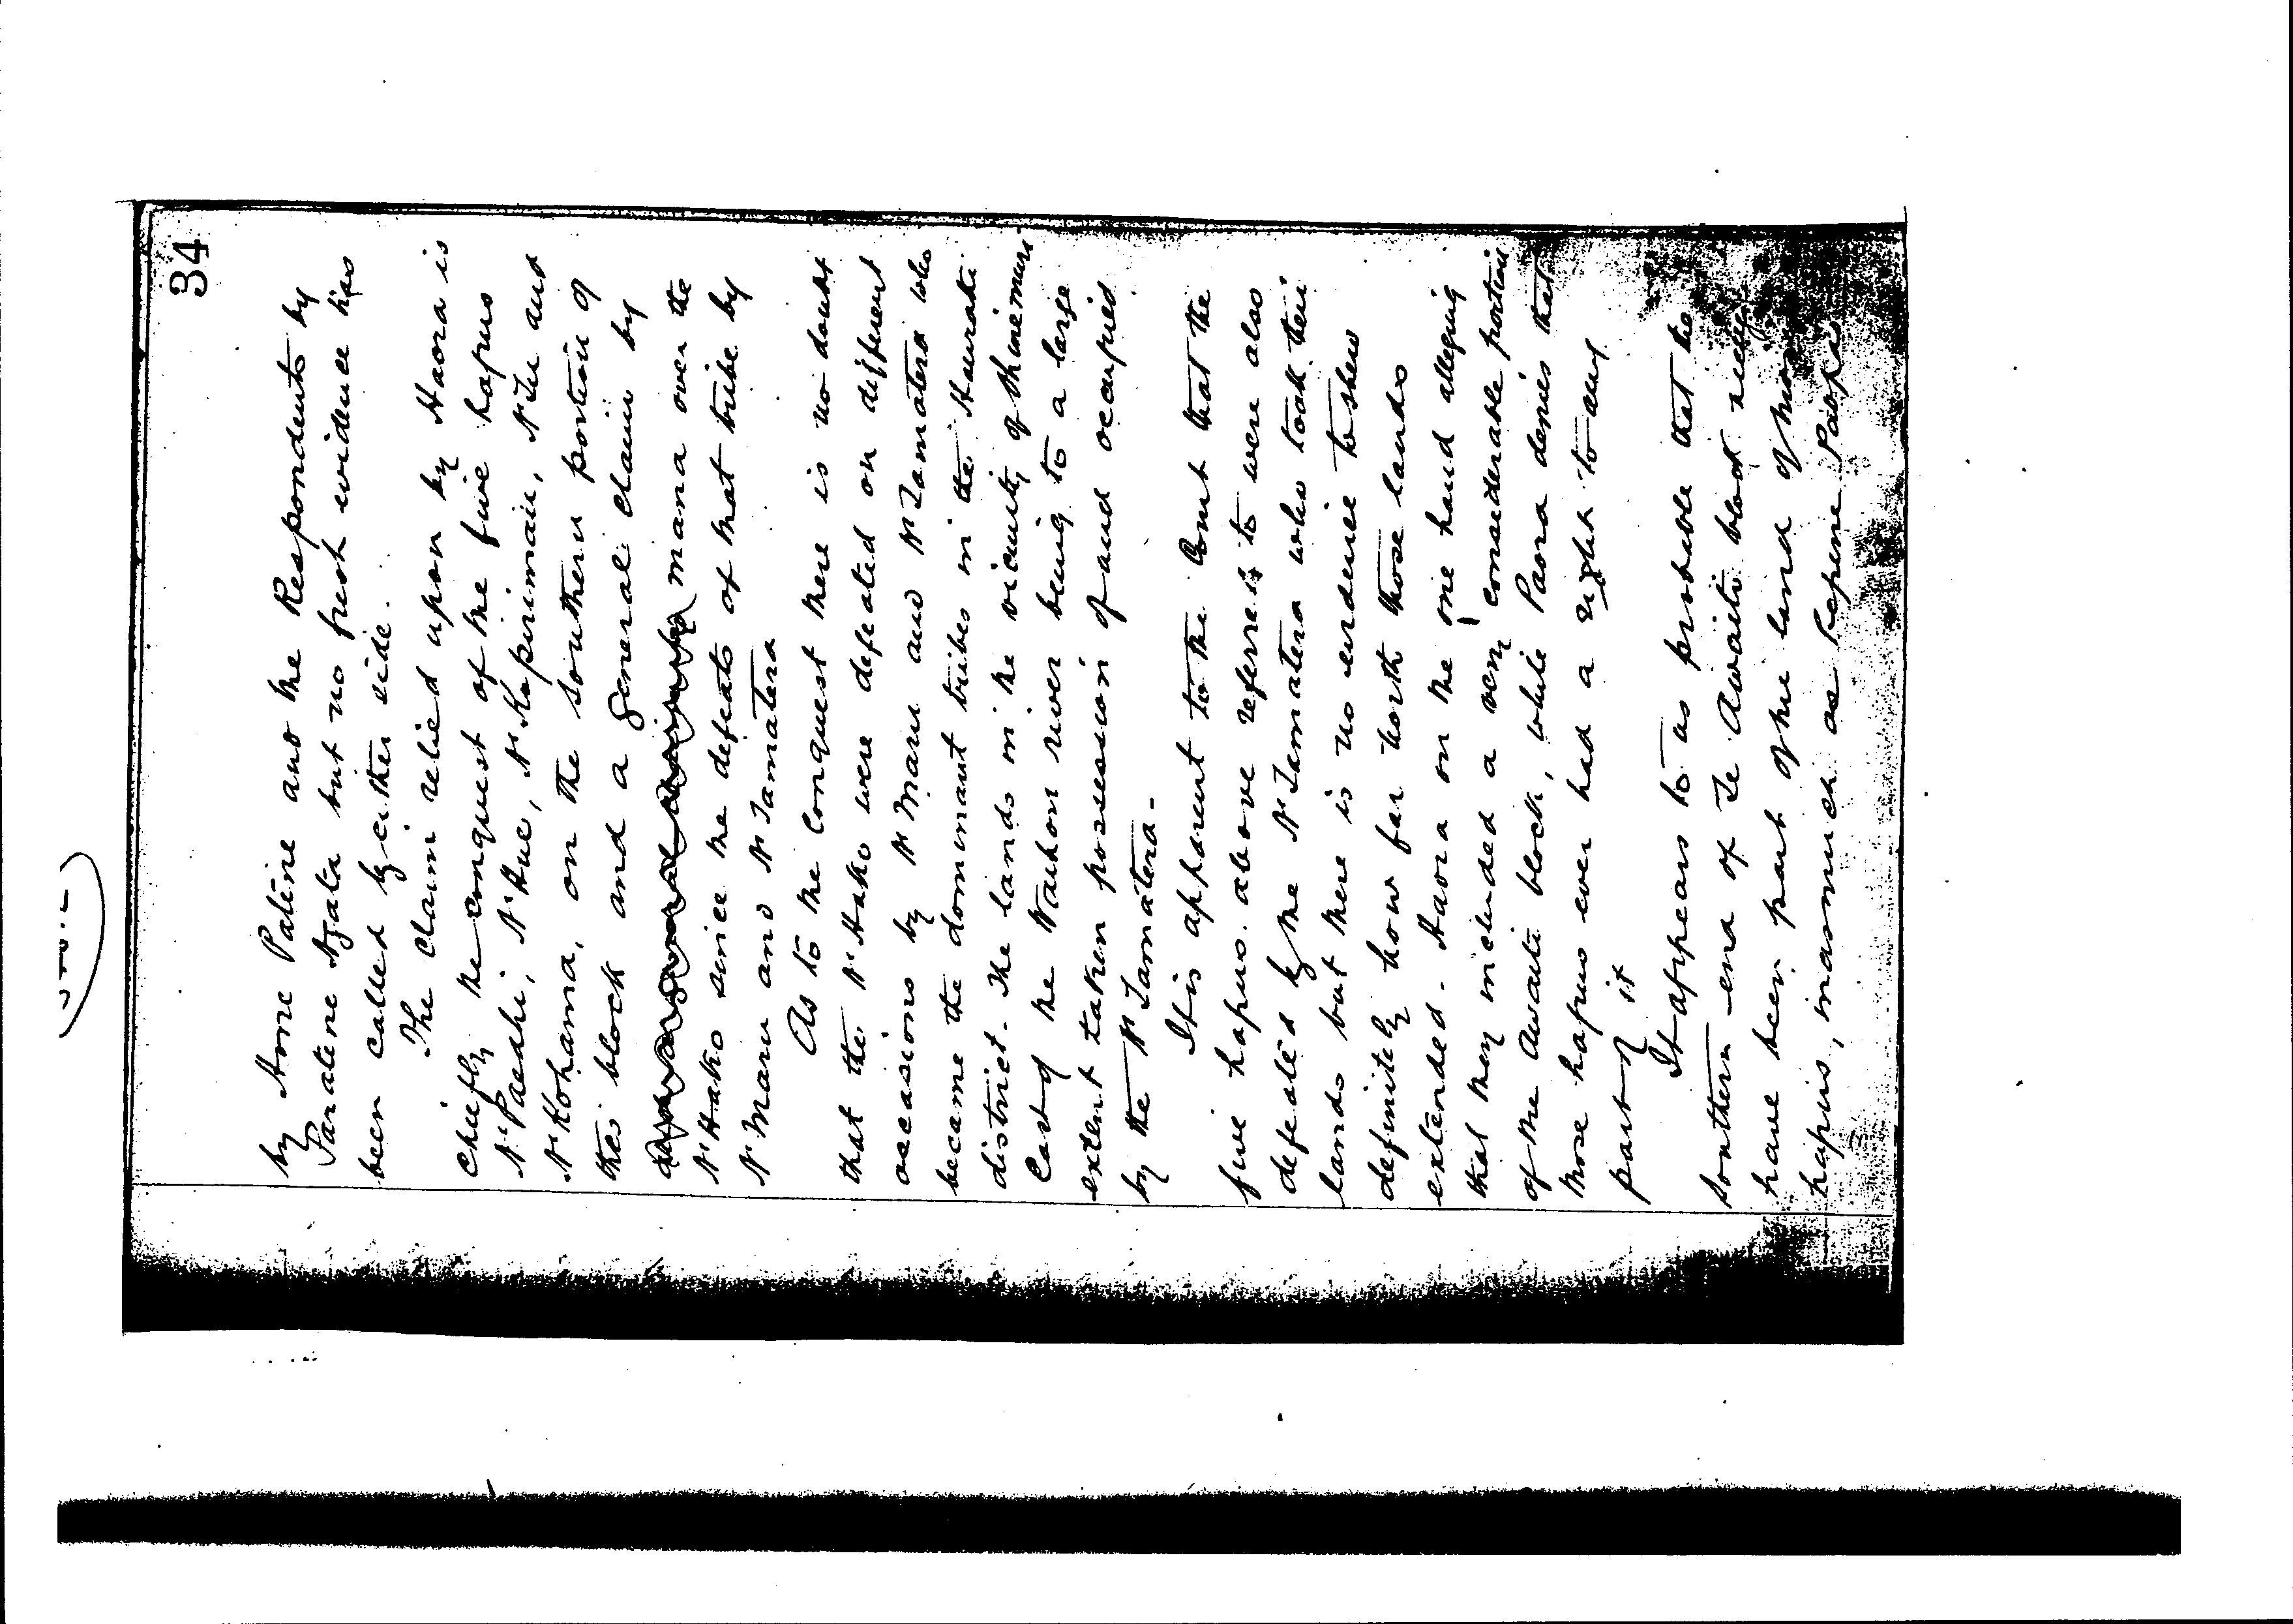 34
by Hone Patene and the Respondents by
Paratene Ngata but no fresh evidence has
been called by either side.
The claim relied upon by Haora is
chiefly the conquest of the five hapus
N' Paeahi, N' Hue, N' Kapirimau, N' Tu and
N' Kohama, on the southern portion of
this block and a general claim by
mana over the
N' Hako since the defeats of that tribe by
N' Maru and N' Tamatera
As to the conquest there is no doubt
that the N' Hako were defeated on different
occasions by N' Maru and N' Tamatera who
became the dominant tribes in the Hauraki
district. The lands in the vicinity of Ohinemuri
East of the Waihou river being to a large
extent taken possession of and occupied
by the N' Tamatera.
It is apparent to the Court that the
five hapus above referred to were also
defeated by the N' Tamatera who took their
lands but there is no evidence to shew
definitely how far north those lands
extended. Haora on the one hand alleging
that they included a very considerable portion
of the Awaiti block, while Paora denies that
those hapus ever had a right to any
part of it
It appears to us probable that the
southern end of Te Awaiti block may
have been part of the land of those
hapus, inasmuch as Repene Paopa